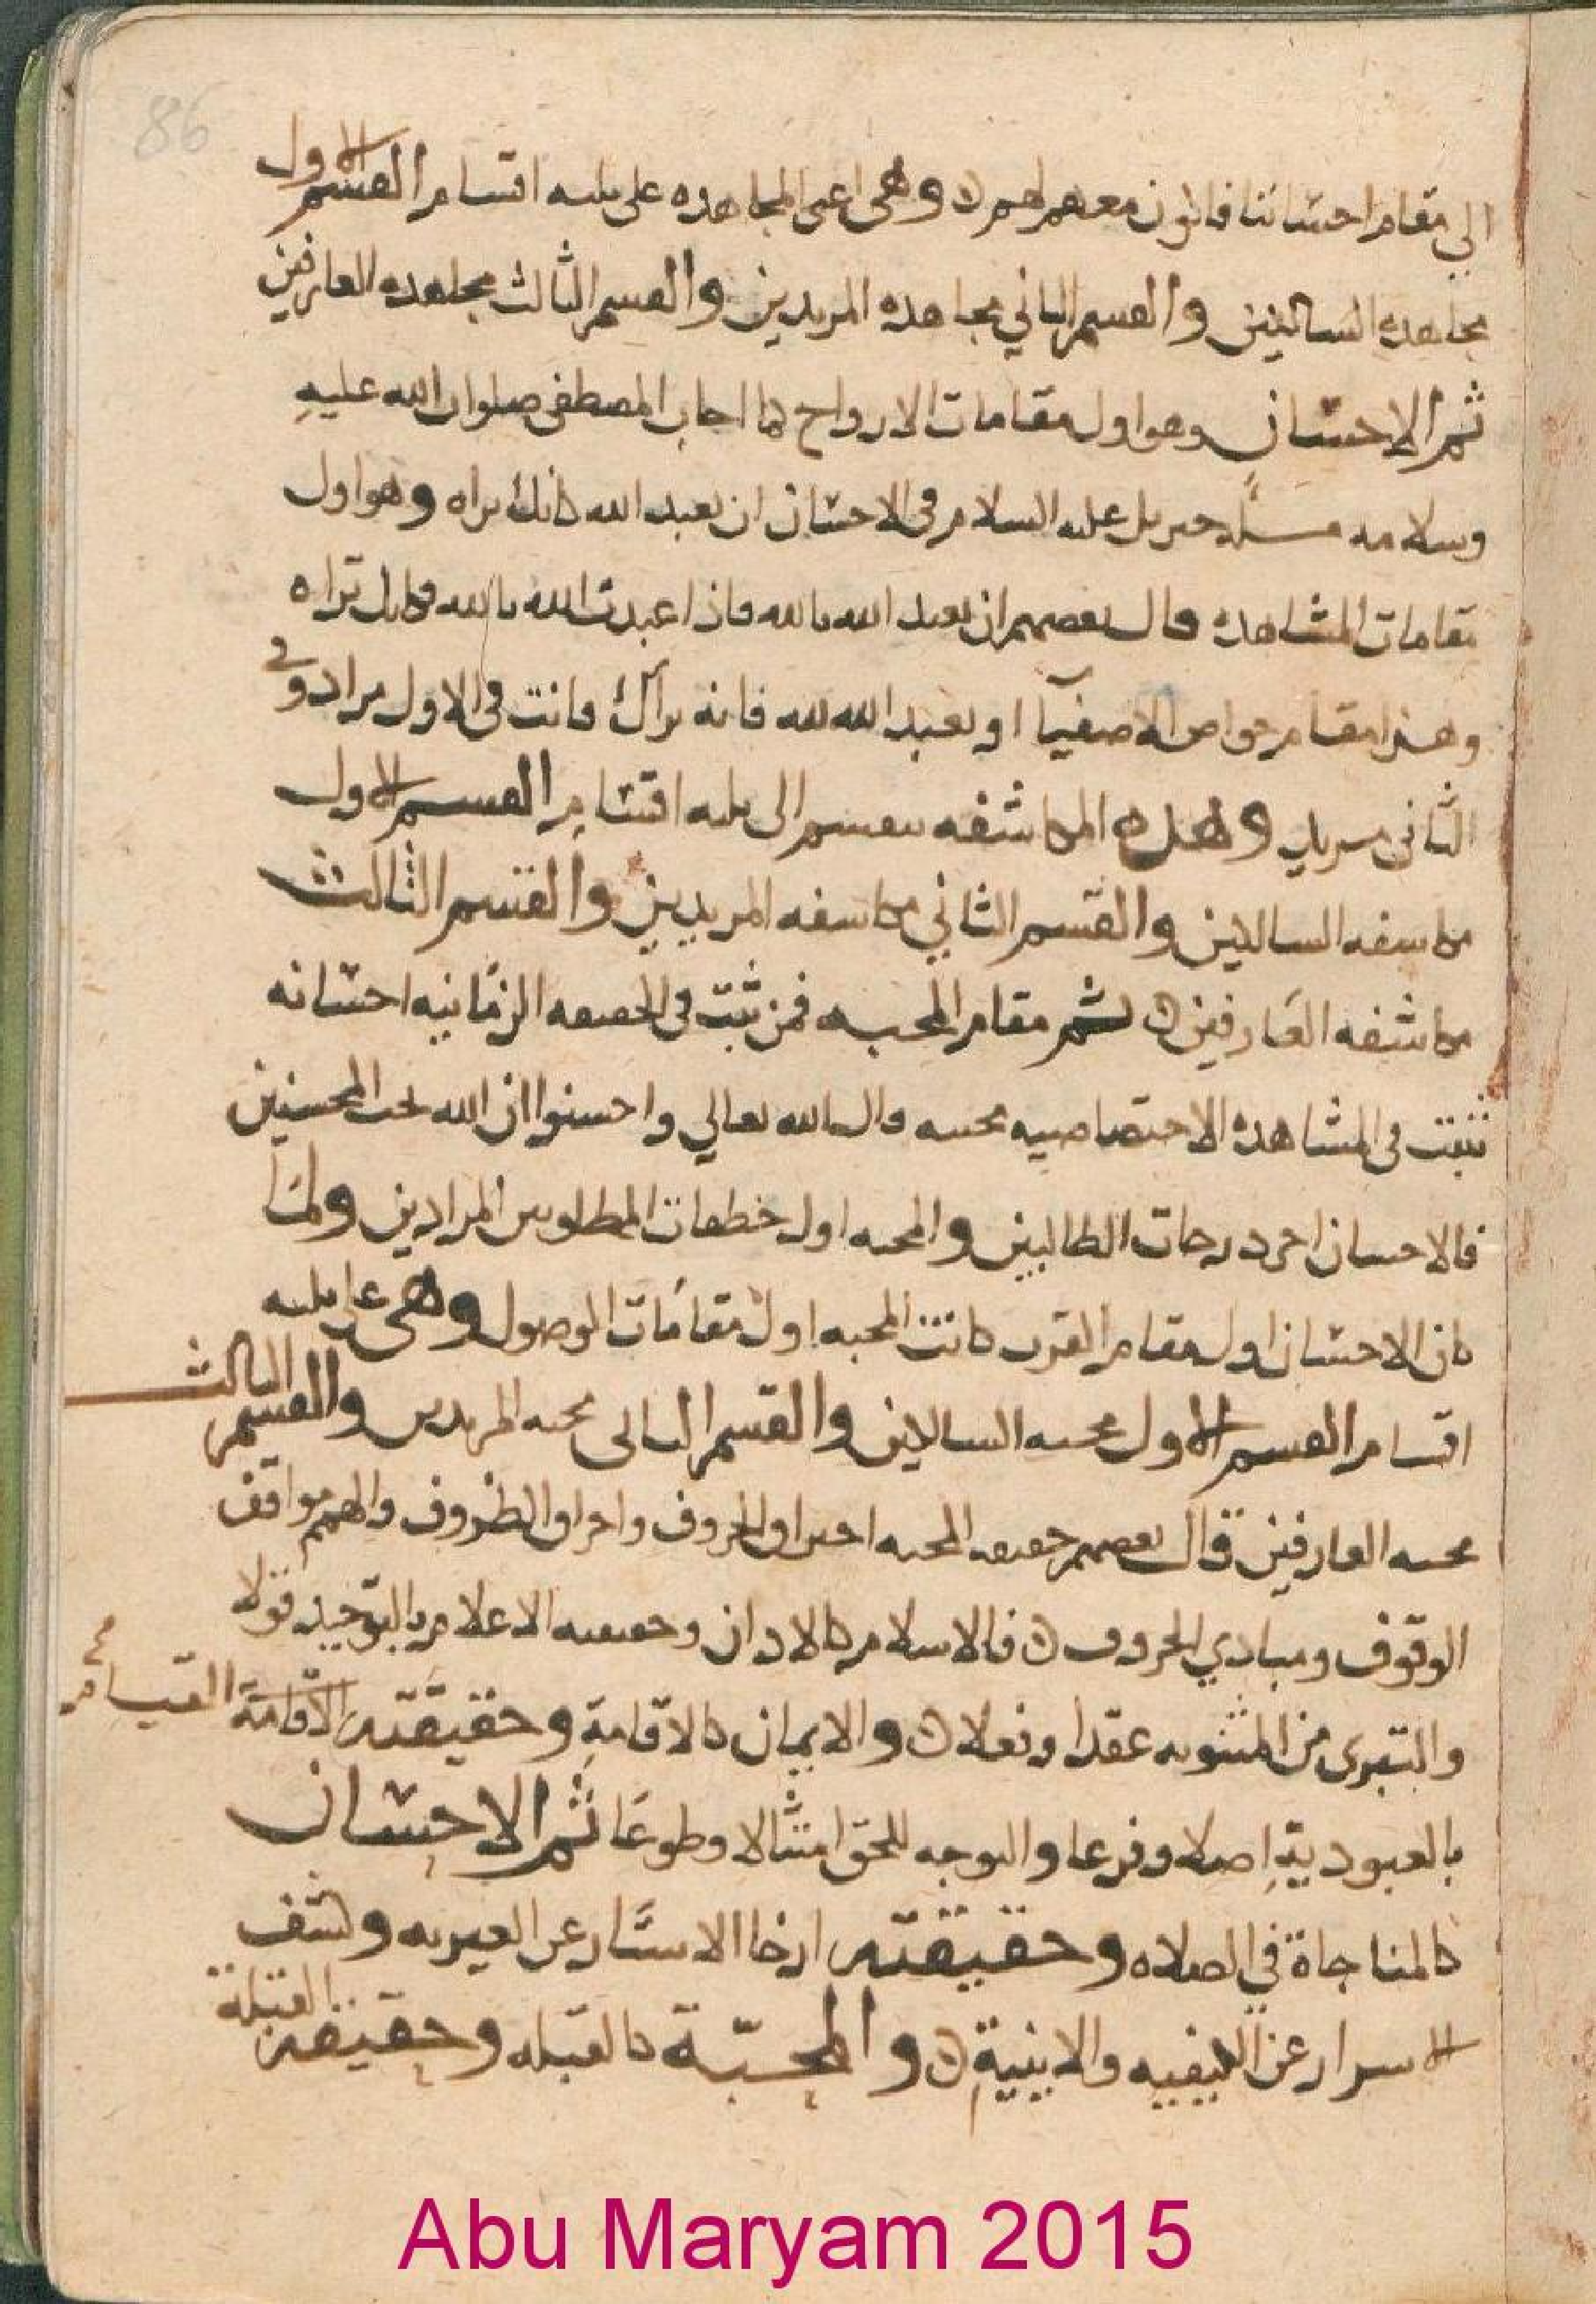 86
الي مقام احساننا فاكون معهم لهم وهي اعني المجاهده على ثلثه اقسام القسم الاول
مجاهده السالكين والقسم الثاني مجاهده المريدين والقسم الثالث مجاهده العارفين
ثم الاحسان وهو اول مقامات الارواح كما اجاب المصطفى صلوات الله عليه
وسلامه مسئله جبريل عليه السلام في الاحسان ان تعبد الله كانك تراه وهو اول
مقامات المشاهده قال بعضهم ان تعبد الله بالله فاذا عبدت الله بالله فكانك تراه
وهذا مقام خواص الاصفيآ او تعبد الله لله فانه يرآك فانت في الاول مراد وفي
الثاني مريد وهذه المكاشفه تنقسم الى ثلثه اقسام القسم الاول
مكاشفه السالكين والقسم الثاني مكاشفه المريدين والقسم الثالث
مكاشفه العارفين ثم مقام المحبه فمن ثبت في الحقيقه الزمانيه احسانه
تثبت في المشاهده الاختصاصيه محبته قال الله تعالي واحسنوا ان الله يحب المحسنين
فالاحسان اخر درجات الطالبين والمحبه اول خطفات المطلوبين المرادين ولما
كان الاحسان اول مقام القرب كانت المحبه اول مقامات الوصول وهي على ثلثه
اقسام القسم الاول محبه السالكين والقسم الثاني محبه المريدين والقسم الثالث
محبه العارفين قال بعضهم حقيقه المحبه احتراق الحروف واخراق الظروف والهم مواقف
الوقوف ومبادي الحروف فالاسلام كالاذان وحقيقته الاعلام بالتوحيد قولا
والتبرى من المثنويه عقدا وفعلا والايمان كالاقامة وحقيقته الاقامة القيام
بالعبودية اصلا وفرعا والتوجه للحق امتثالا وطوعا ثم الاحسان
كالمناجاة في الصلاه وحقيقته ارخا الاستار عن الغيريه وكشف
الاسرار عن الكيفيه والاينية والمحبة كالقبله وحقيقة القبلة
Abu Maryam 2015